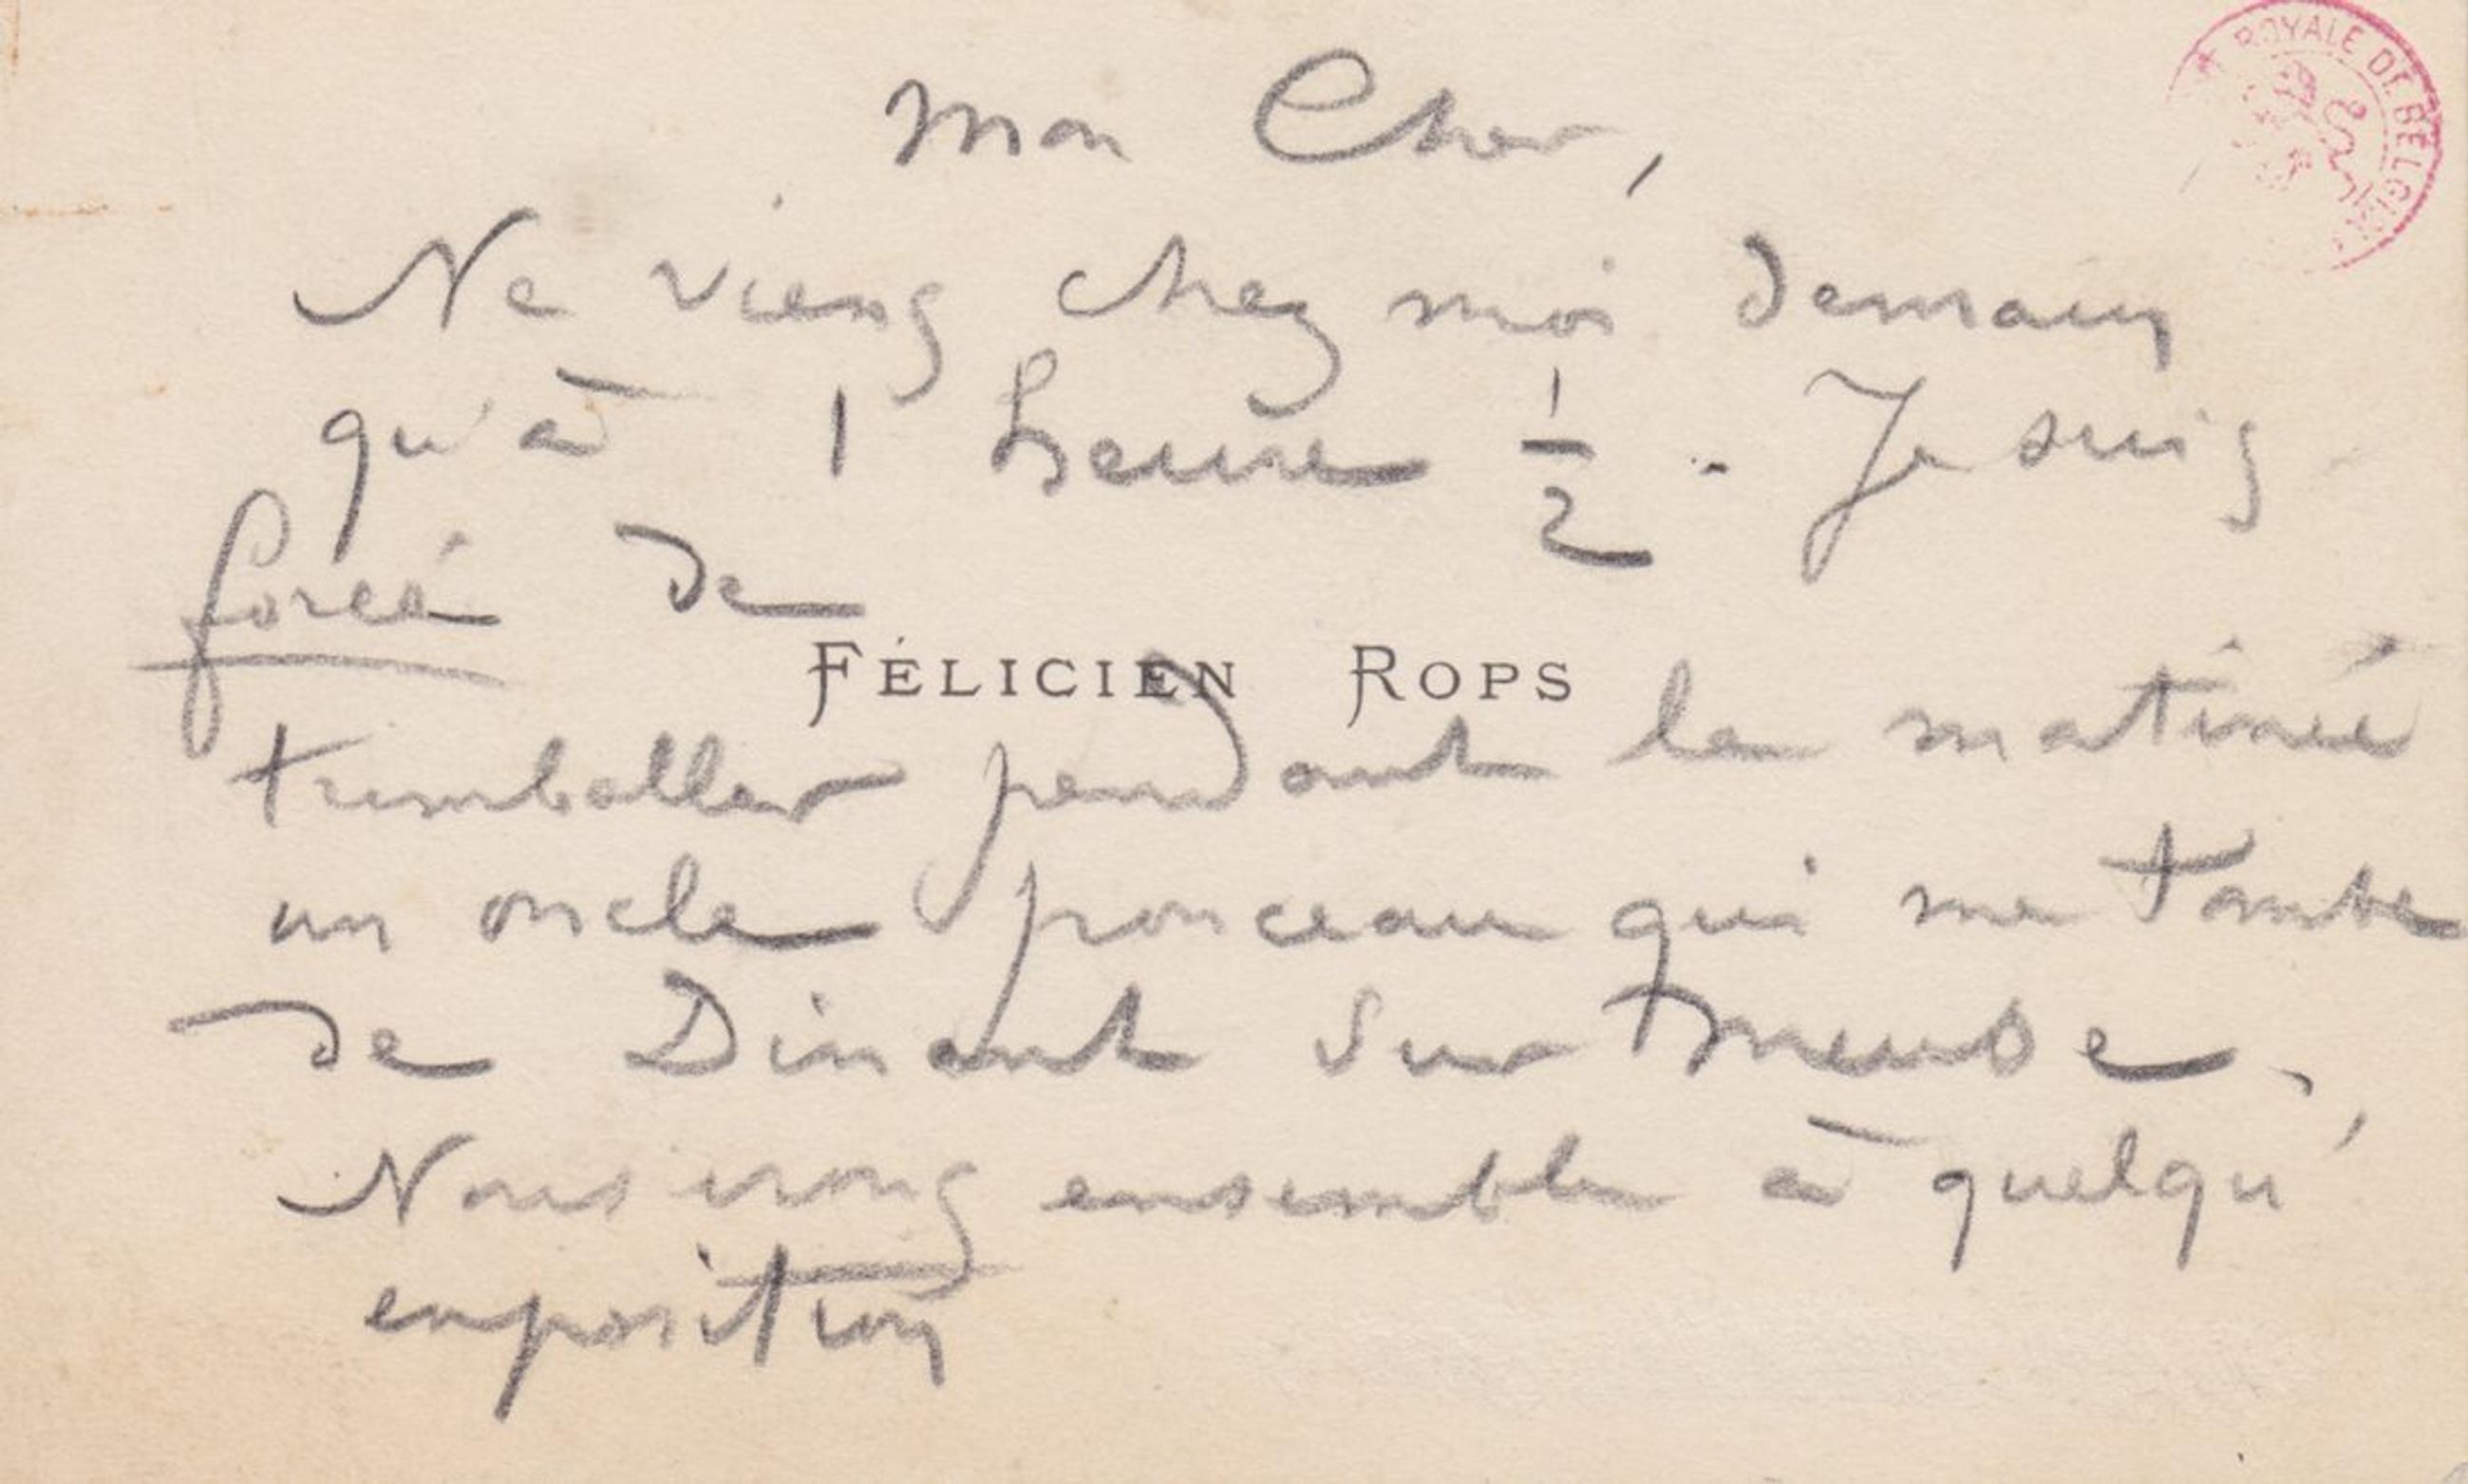 Mon Cher,
ROYALE DE BELGIQUE
Ne viens chez moi demain
qu'à 1 heure 1/2. Je suis
forcé de
FÉLICIEN ROPS
trimballer pendant la matinée
un oncle ponceau qui me tombe
de Dinant sur Meuse.
Nous irons ensemble à quelqu'
exposition